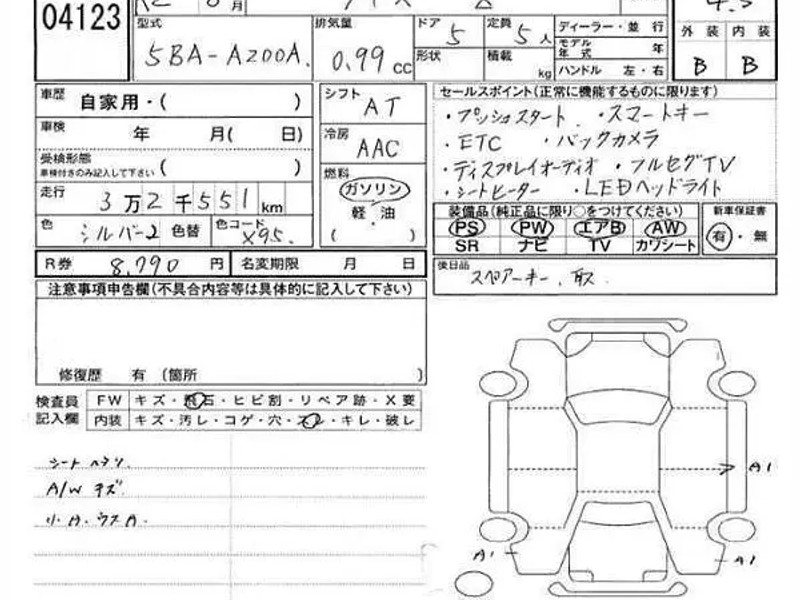 04123
月
4.5
型式
5BA-A200A
排気量
0.99 CC
ドア 5
定員 5人
形状
積載 kg
ディーラー・並 行
モデル年式 年
ハンドル 左・右
外装 内装
B B
車歴 自家用・( )
車検 年 月( 日)
受検形態
車検付きのみ記入して下さい ( )
走行 3万2千551km
色 シルバー2 色替 色コード X95.
シフト AT
冷房 AAC
燃料
ガソリン
軽・油
( )
セールスポイント(正常に機能するものに限ります)
・プッシュスタート ・スマートキー
・ETC ・バックカメラ
・ディスプレイオーディオ ・フルセグTV
・シートヒーター ・LEDヘッドライト
装備品(純正品に限り○をつけてください)
PS PW エアB AW
SR ナビ TV カワシート
新車保証書
有・無
R券 8,790 円 名変期限 月 日
後日品 スペアーキー、取
注意事項申告欄(不具合内容等は具体的に記入して下さい)
修復歴 有 〔箇所 〕
検査員記入欄
FW キズ・飛石・ヒビ割・リペア跡・X要
内装 キズ・汚レ・コゲ・穴・スレ・キレ・破レ
シート ヘタリ.
A/W キズ.
小キズ・ウスキズ.
A1
A1
A1